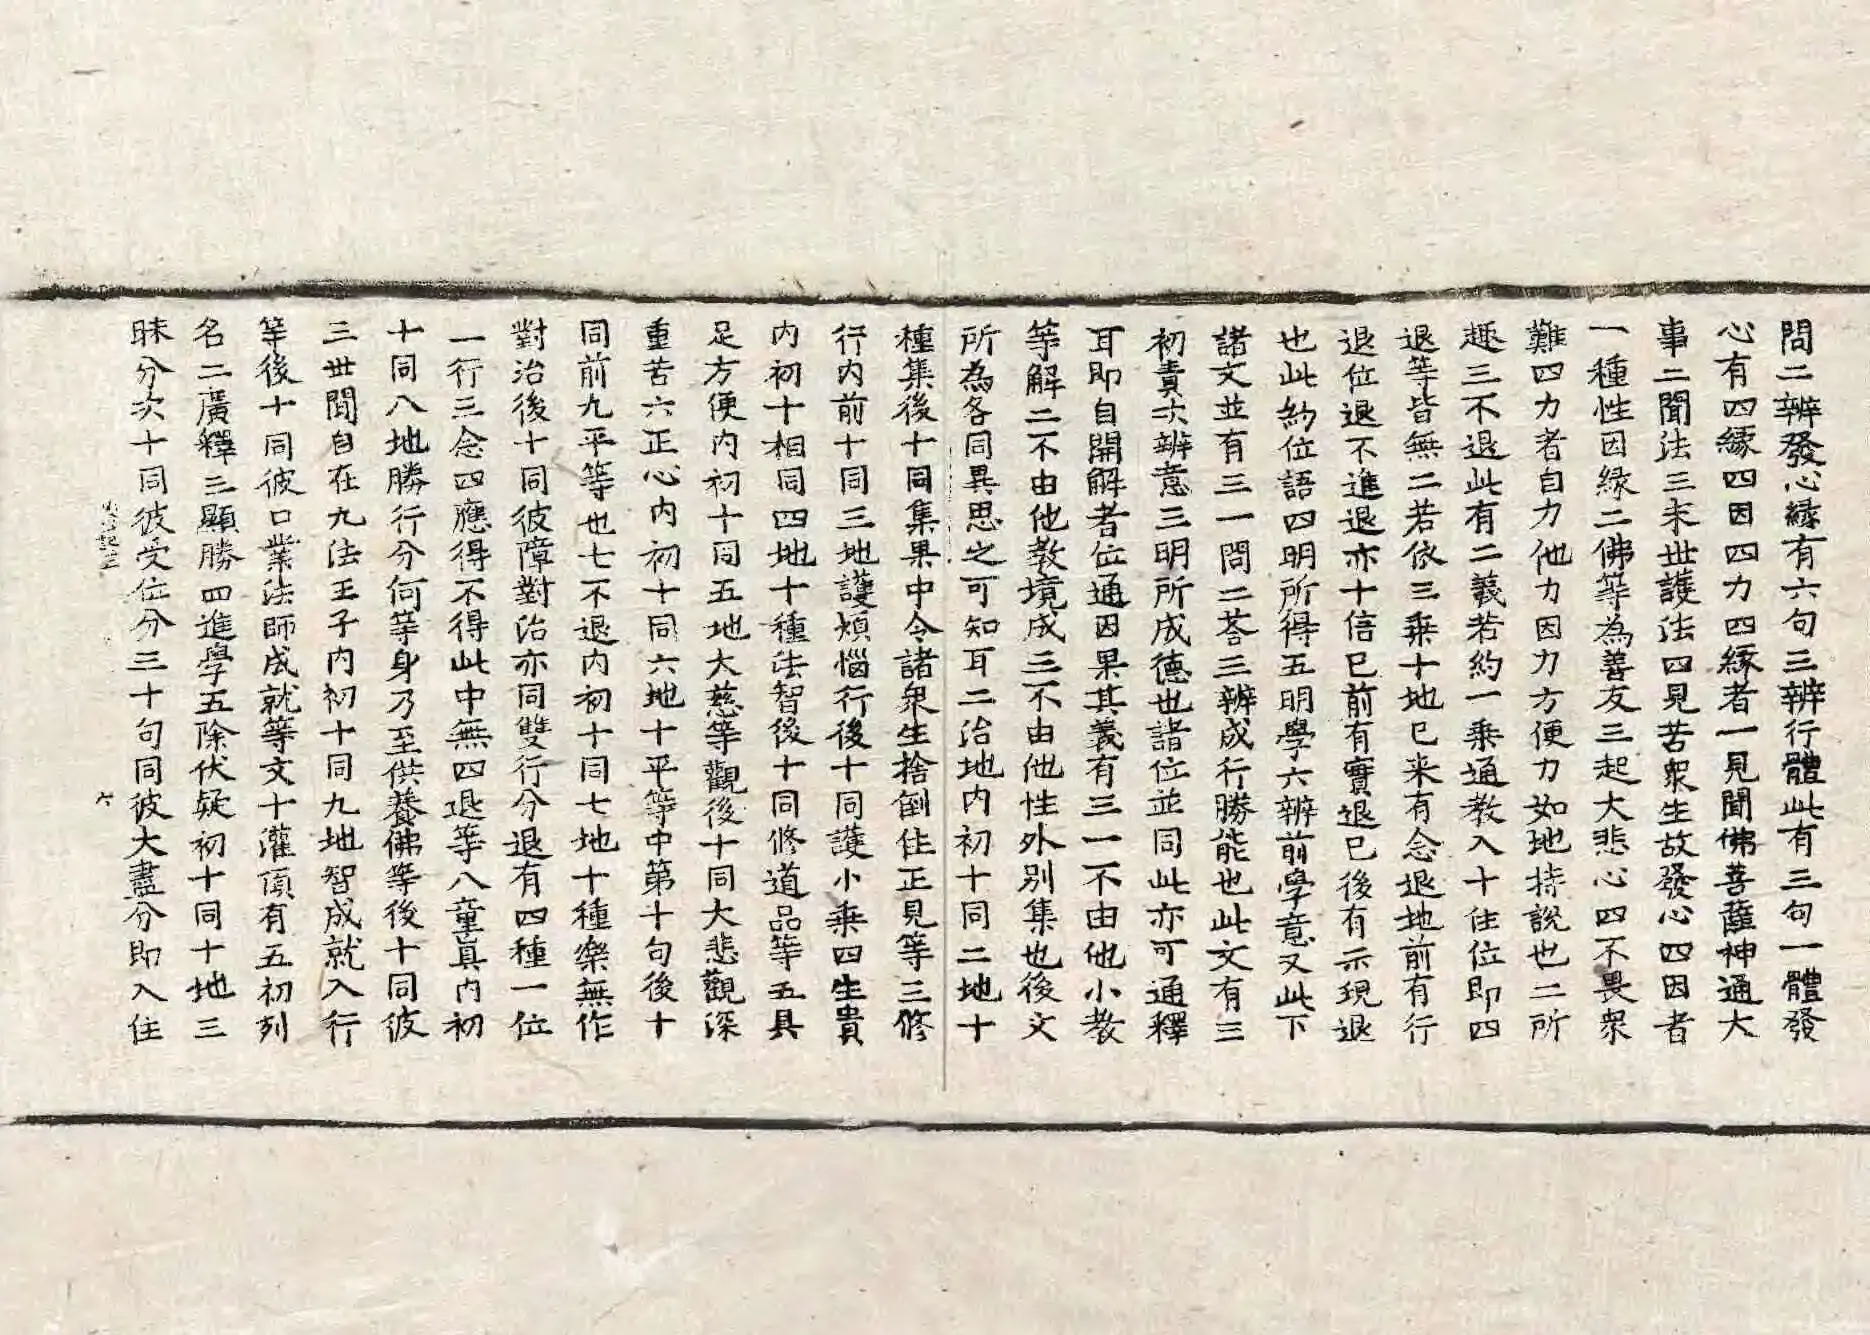 問二辨發心緣有六句三辨行體此有三句一體發
心有四緣四因四力四緣者一見聞佛菩薩神通大
事二聞法三末世護法四見苦衆生故發心四因者
一種性因緣二佛等為善友三起大悲心四不畏衆
難四力者自力他力因力方便力如地持說也二所
趣三不退此有二義若約一乘通教入十住位即四
退等皆無二若依三乘十地已来有念退地前有行
退位退不進退亦十信已前有實退已後有示現退
也此約位語四明所得五明學六辨前學意又此下
諸文並有三一問二荅三辨成行勝能也此文有三
初責次辨意三明所成德也諸位並同此亦可通釋
耳即自開解者位通因果其義有三一不由他小教
等解二不由他教境成三不由他性外别集也後文
所為各同異思之可知耳二治地内初十同二地十
種集後十同集果中令諸衆生捨倒住正見等三修
行内前十同三地護煩惱行後十同護小乘四生貴
内初十相同四地十種法智後十同修道品等五具
足方便内初十同五地大慈等觀後十同大悲觀深
重苦六正心内初十同六地十平等中第十句後十
同前九平等也七不退内初十同七地十種樂無作
對治後十同彼障對治亦同雙行分退有四種一位
一行三念四應得不得此中無四退等八童真内初
十同八地勝行分何等身乃至供養佛等後十同彼
三世間自在九法王子内初十同九地智成就入行
等後十同彼口業法師成就等文十灌頂有五初列
名二廣釋三顯勝四進學五除伏疑初十同十地三
昧分次十同彼受位分三十句同彼大盡分即入住
記三
六